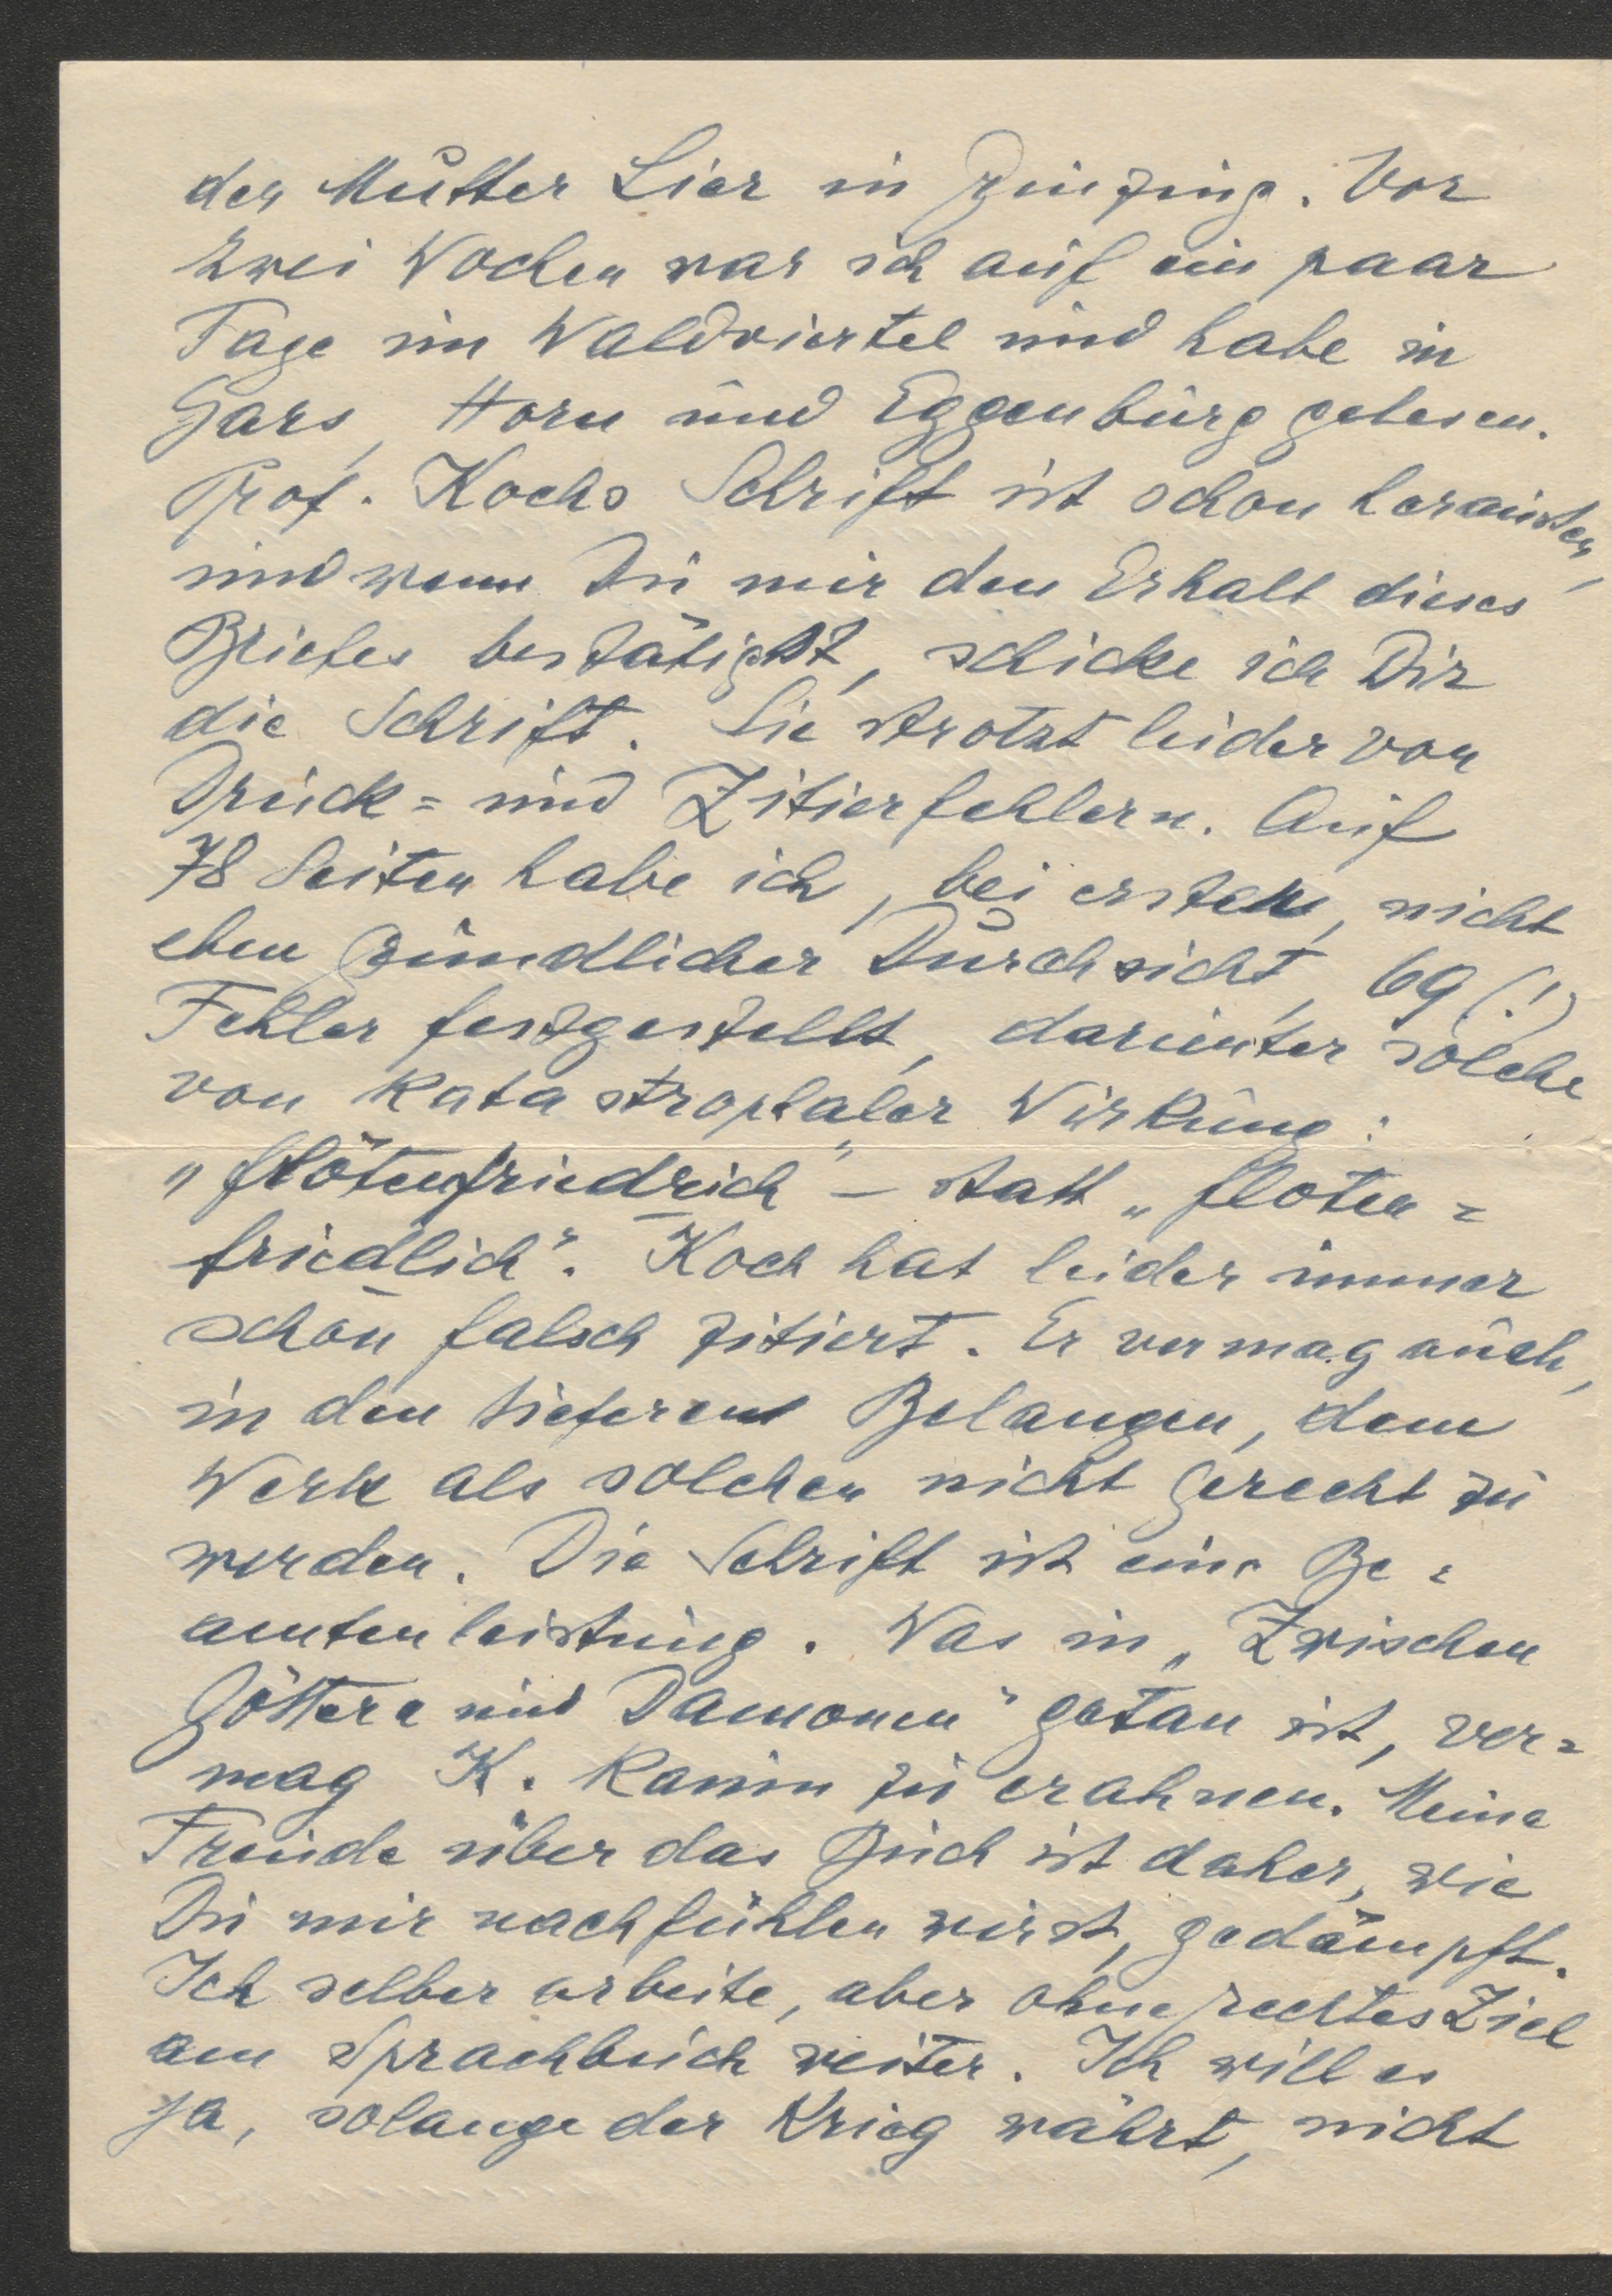 der Mutter Lier in Grinzing. Vor
zwei Wochen war ich auf ein paar
Tage im Waldviertel und habe in
Gars, Horn und Eggenburg gelesen.
Prof. Kochs Schrift ist schon heraußen,
und wenn Du mir den Erhalt dieses
Briefes bestätigst, schicke ich Dir
die Schrift. Sie strotzt leider von
Druck= und Zitierfehlern. Auf
78 Seiten habe ich, bei erster, nicht
eben gründlicher Durchsicht, 69 (!)
Fehler festgestellt, darunter solche
von katastrophaler Wirkung:
„flötenfriedrich" – statt „flöten=
friedlich". Koch hat leider immer
schon falsch zitiert. Er vermag auch,
in den tieferen Belangen, dem
Werk als solchen nicht gerecht zu
werden. Die Schrift ist eine Be=
amtenleistung. Was in „Zwischen
Göttern und Dämonen" getan ist, ver=
mag K. kaum zu erahnen. Meine
Freude über das Buch ist daher, wie
Du mir nachfühlen wirst, gedämpft.
Ich selber arbeite, aber ohne rechtes Ziel
am Sprachbuch weiter. Ich will es
ja, solange der Krieg währt, nicht